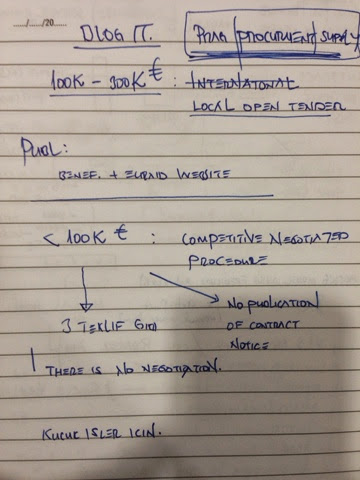 ....../....../20......
DLOG IT.
PRAG/PROCUREMENT/SUPPLY
100K - 300K € : INTERNATIONAL
LOCAL OPEN TENDER
PUBL:
BENEF. + EUROAID WEBSITE
< 100K € : COMPETITIVE NEGOTIATED
PROCEDURE
3 TEKLIF GIBI
NO PUBLICATION
OF CONTRACT
NOTICE
! THERE IS NO NEGOTIATION.
KUCUK ISLER ICIN.